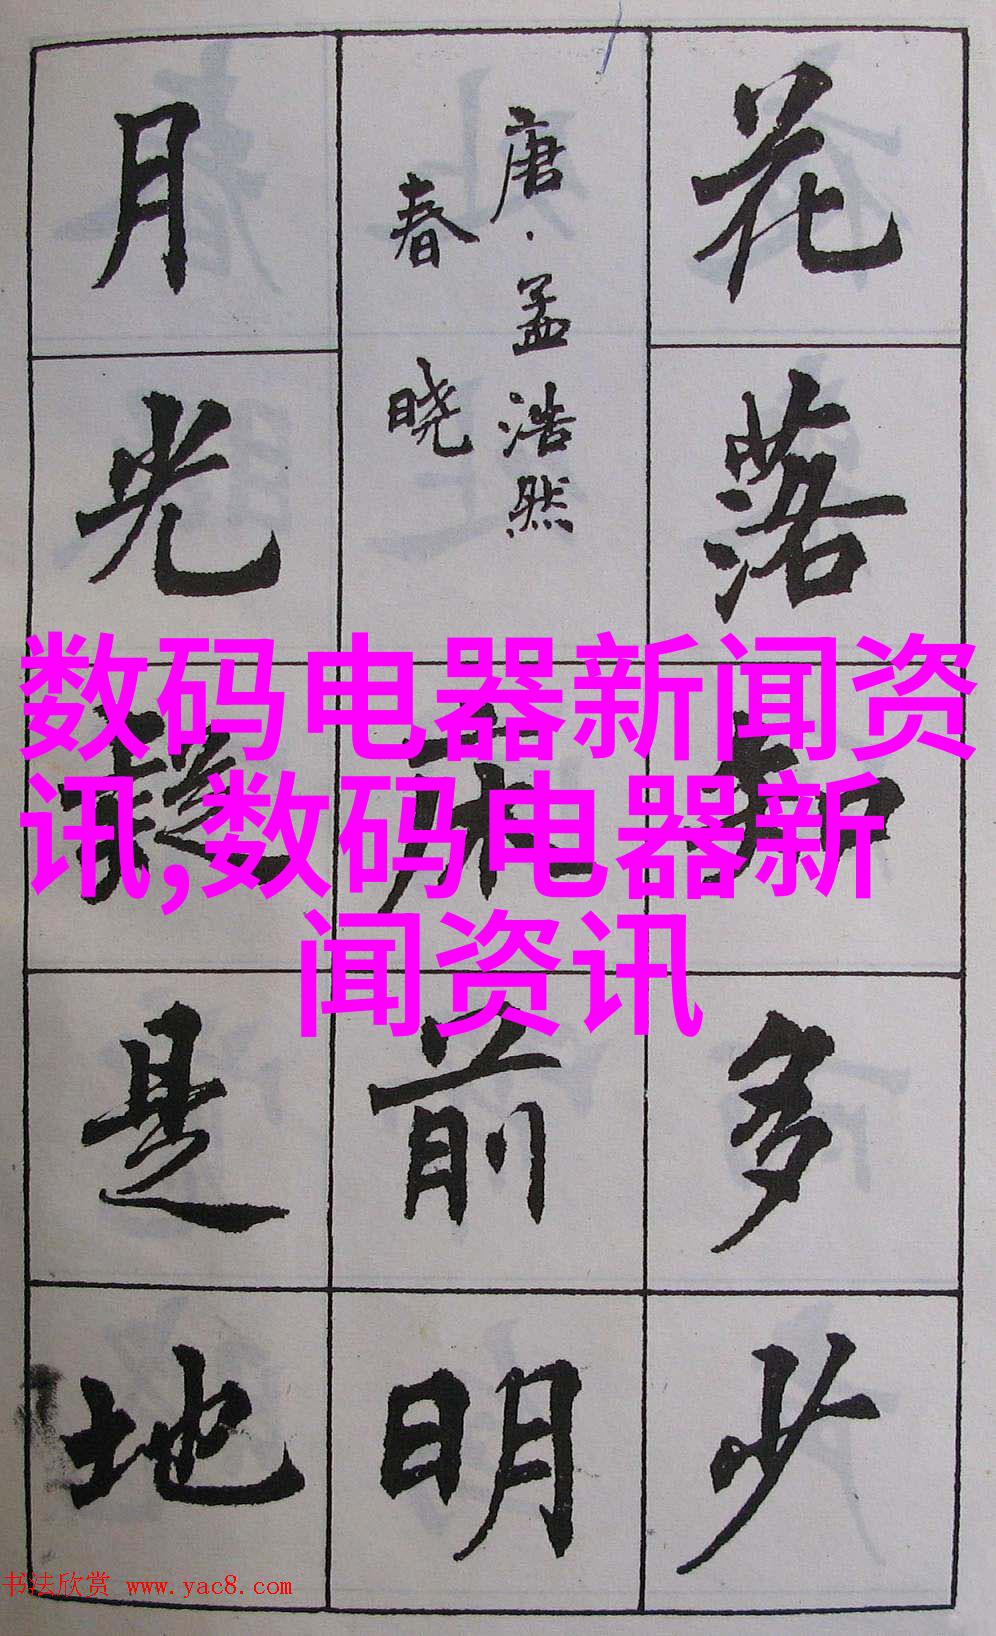 花落知多少
唐·孟浩然
春晓
床前明
月光疑是地
数码电器新闻资
讯,数码电器新
闻资讯
书法欣赏 www.yac8.com